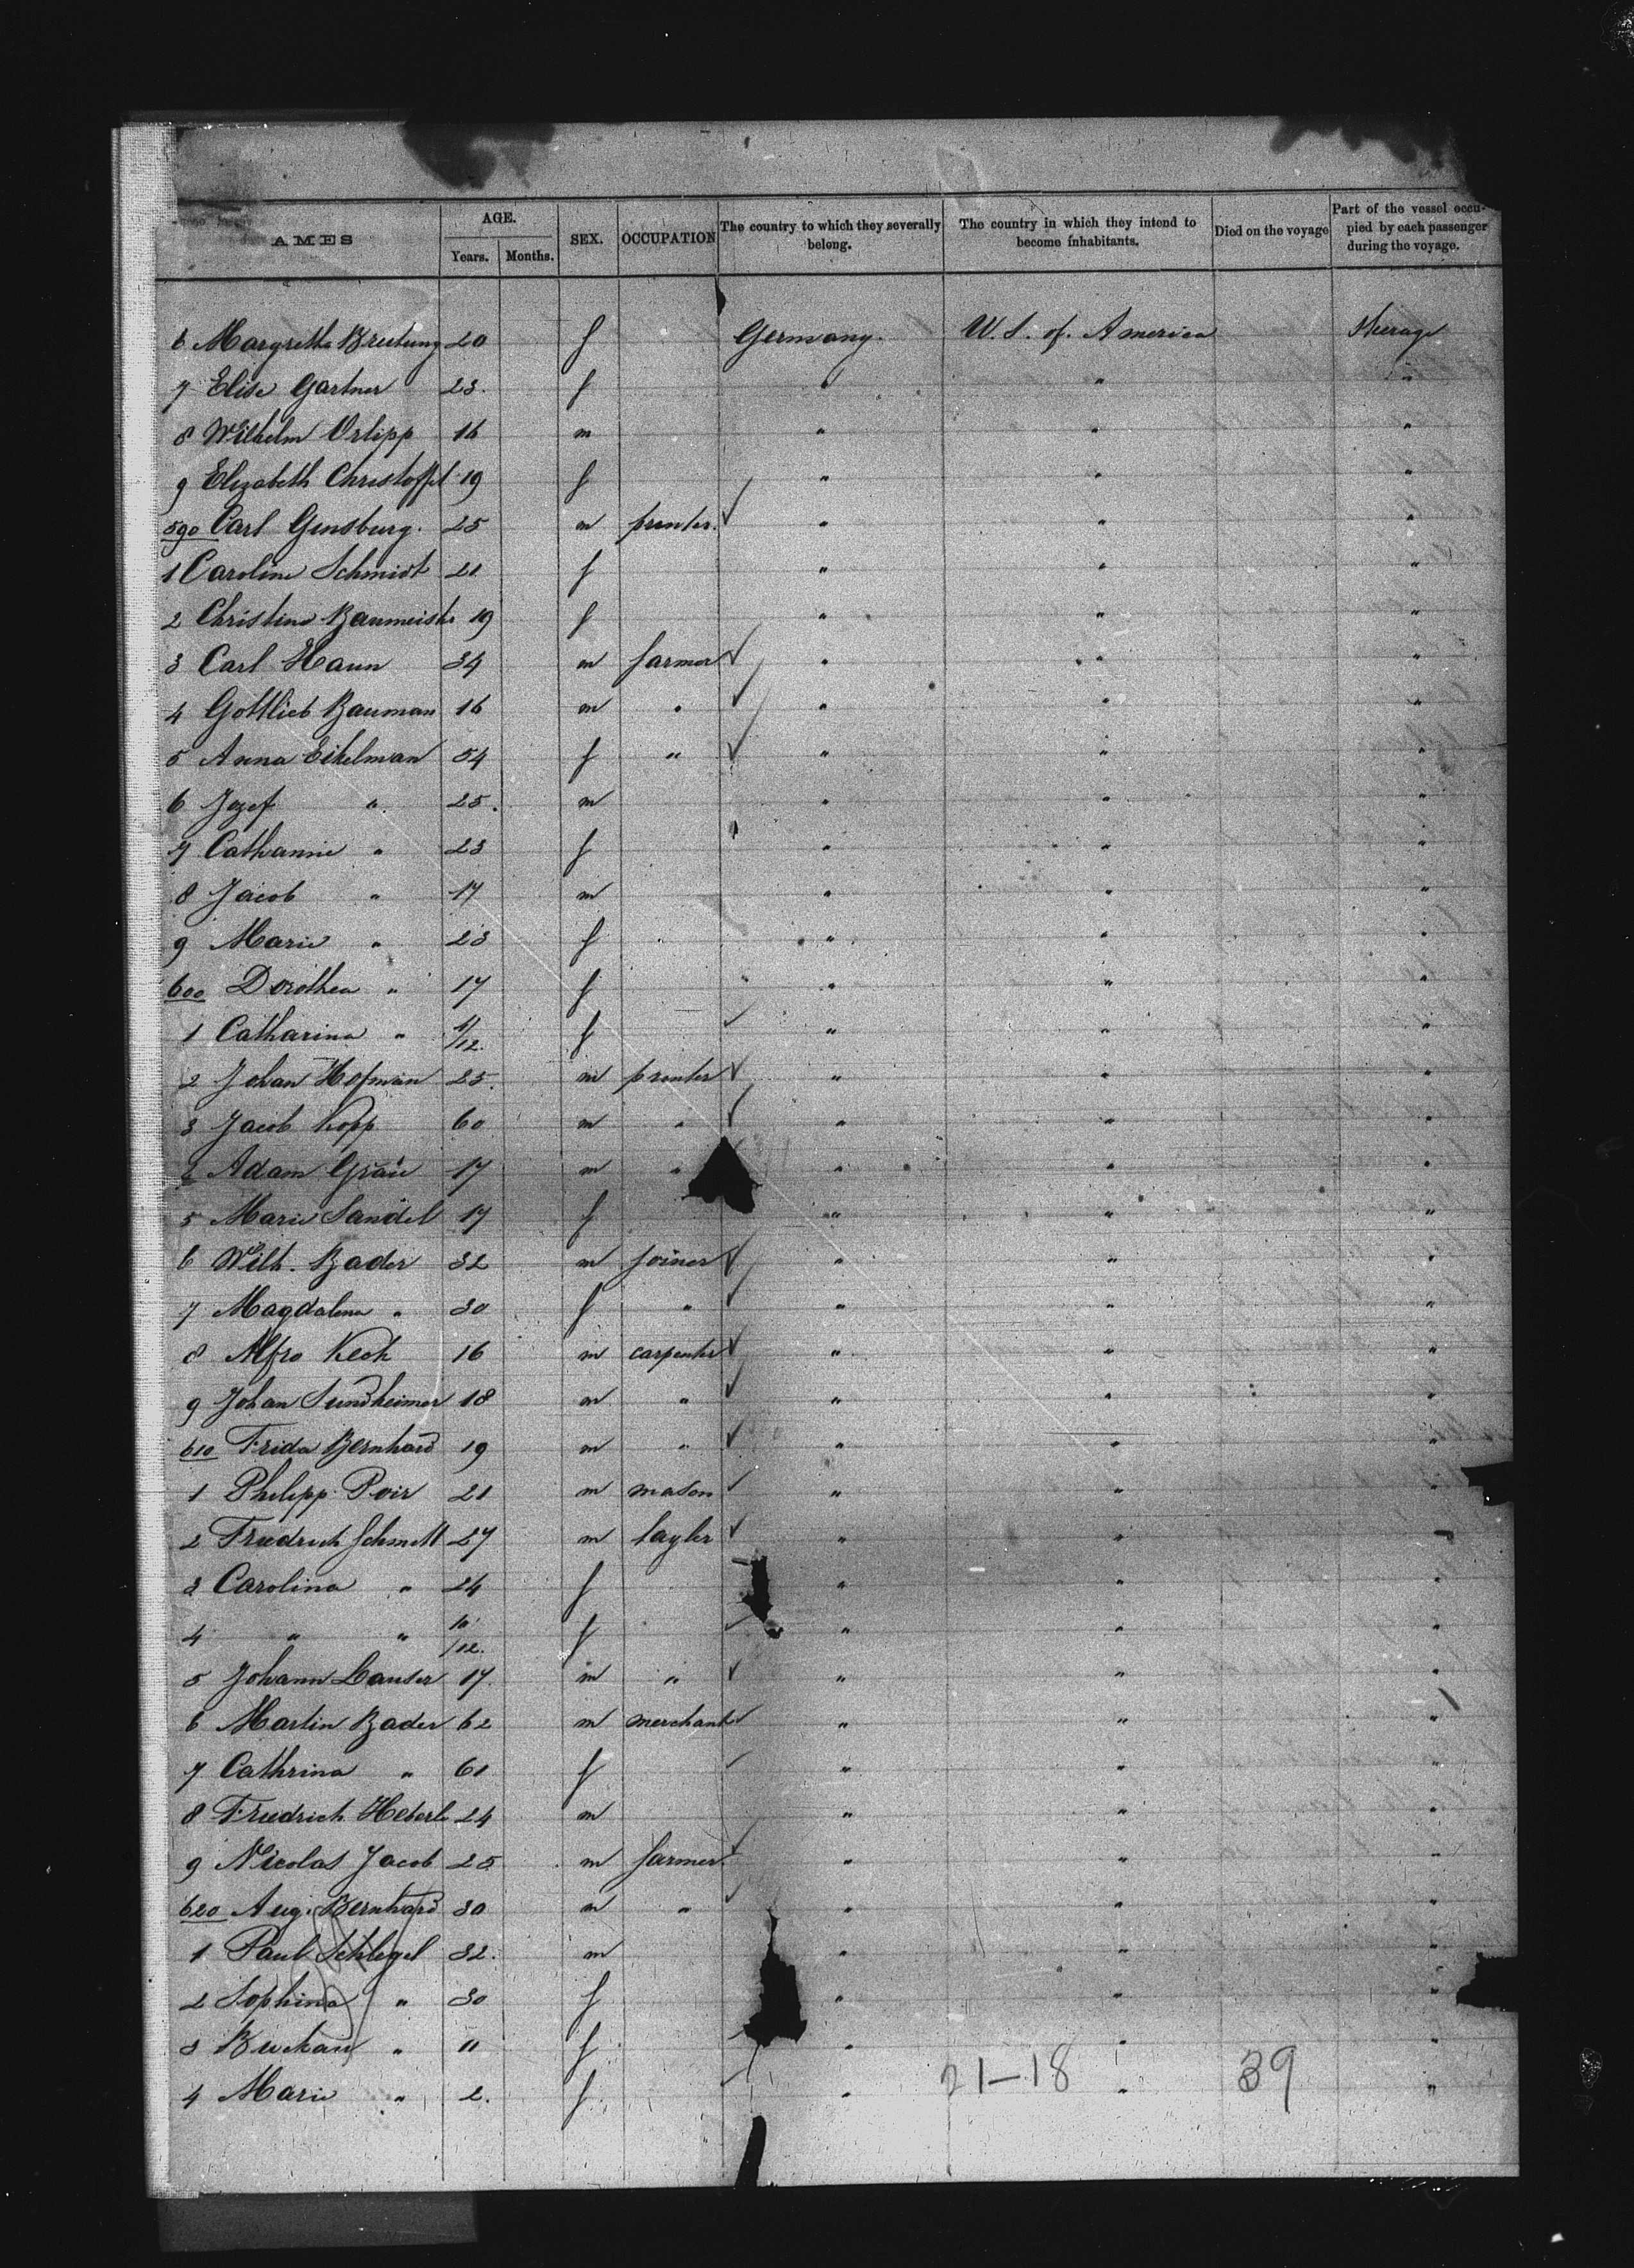 AMES AGE. SEX. OCCUPATION The country to which they severally belong. The country in which they intend to become inhabitants. Died on the voyage Part of the vessel occupied by each passenger during the voyage.
Years. Months.
6 Margretha Breitung 20 f Germany. U.S. of America Steerage
7 Elise Gartner 23. f " " "
8 Wilhelm Orlipp 16 m " " "
9 Elizabeth Christoffel 19 f " " "
590 Carl Gensburg. 25 m printer. " " "
1 Caroline Schmidt 21 f " " "
2 Christine Baumeister 19 f " " "
3 Carl Haun 34 m farmer " " "
4 Gottlieb Bauman 16 m " " " "
5 Anna Eikelman 54 f " " " "
6 Jozef " 25. m " " "
7 Catharine " 23 f " " "
8 Jacob " 17 m " " "
9 Marie " 23 f " " "
600 Dorothea " 17 f " " "
1 Catharina " /12. f " " "
2 Johan Hofman 25. m printer " " "
3 Jacob Kopp 60 m " " " "
Adam Grau 17 m " " " "
5 Marie Sandel 17 f " " "
6 Wilh. Bader 32 m joiner " " "
7 Magdalena " 30 f " " " "
8 Alfro Keck 16 m carpenter " " "
9 Johan Sundheimer 18 m " " " "
610 Frida Bernhard 19 m " " " "
1 Philipp Poir 21 m mason " " "
2 Friedrich Schmitt 27 m tayler " "
3 Carolina " 24 f " " "
4 " " 10/12. f " " "
5 Johann Lauser 17. m " " " "
6 Martin Bader 62 m merchant " " "
7 Cathrina " 61 f " " "
8 Friedrich Heberle 24 m " " "
9 Nicolas Jacob 25 m farmer. " " "
620 Aug. Bernhard 30 m " " " "
1 Paul Schlegel 32. m " " "
2 Sophina " 30 f " " "
3 " 11 f " " "
4 Marie " 2. f " " "
21-18 39